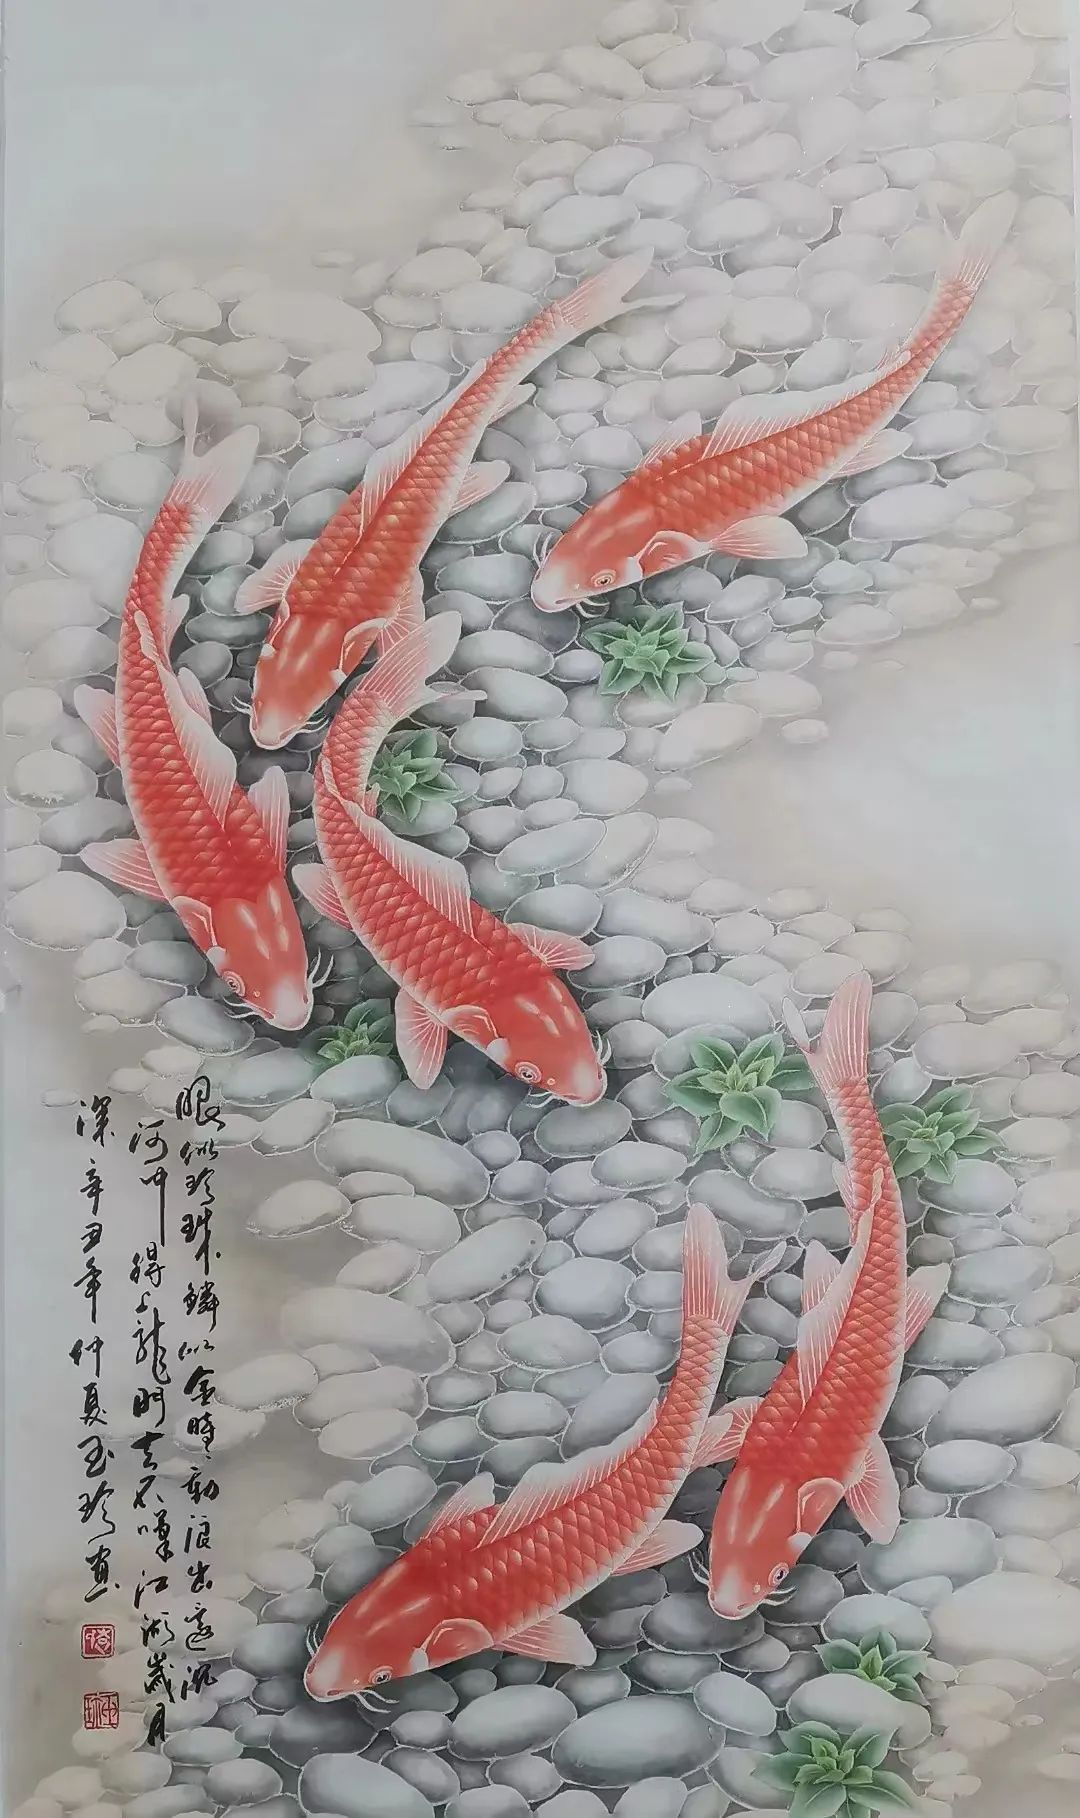 眼似珍珠鳞似金时时动浪出还沉
河中得上龙门去不叹江湖岁月
深辛丑年仲夏玉珍画